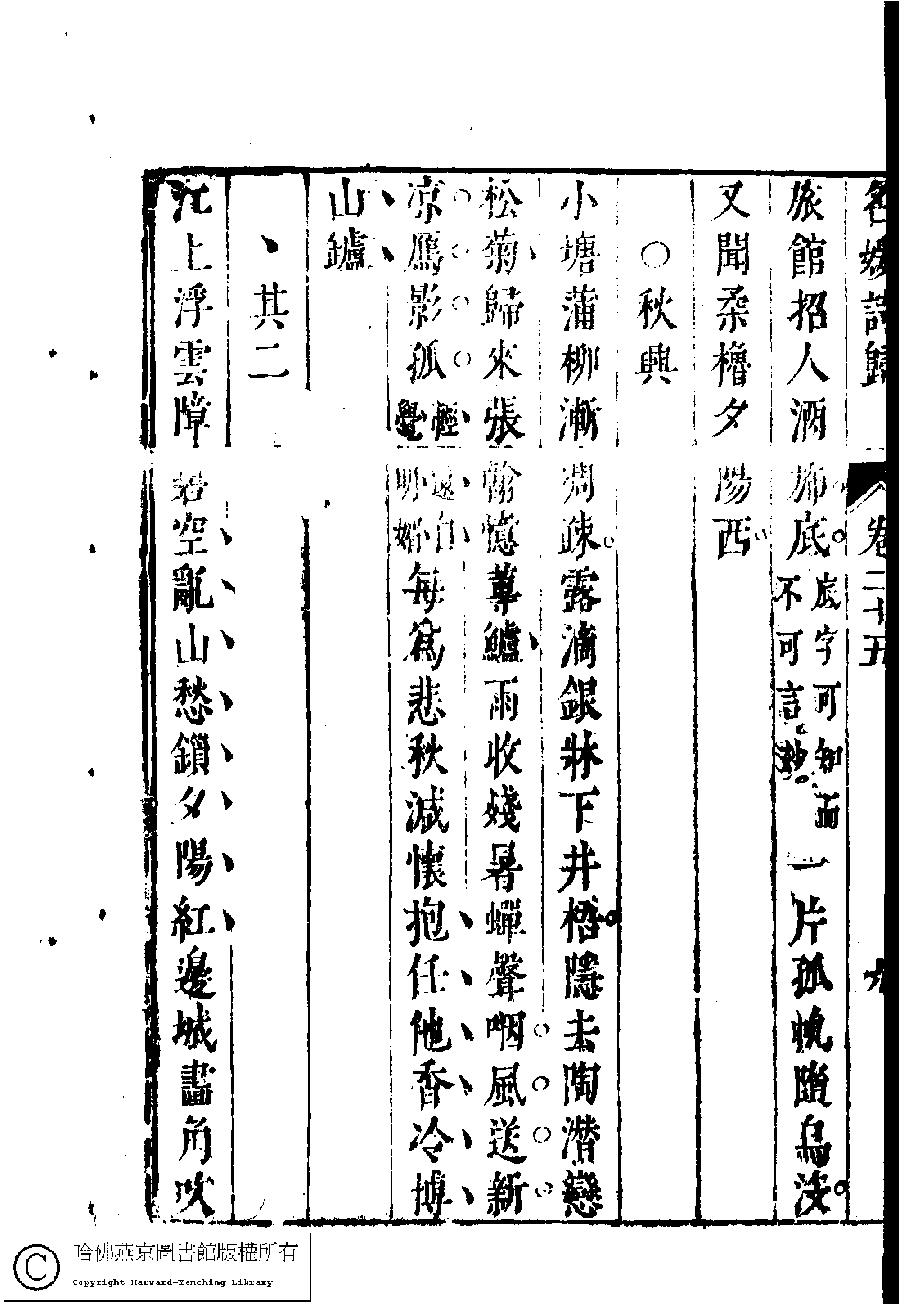 名媛詩歸 卷二十五 九
旅館招人酒斾底底字可知而不可言妙一片孤帆墮烏没
又聞柔櫓夕陽西
○秋興
小塘蒲柳漸凋疎露滴銀牀下井梧隱去陶潛戀
松菊歸來張翰憶蓴鱸雨收殘暑蟬聲咽風送新
凉鴈影孤輕遠自覺明媚每爲悲秋減懷抱任他香冷博
山鑪
其二
江上浮雲障碧空亂山愁鎖夕陽紅邊城畵角吹
© 哈佛燕京圖書館版權所有
Copyright Harvard-Yenching Library